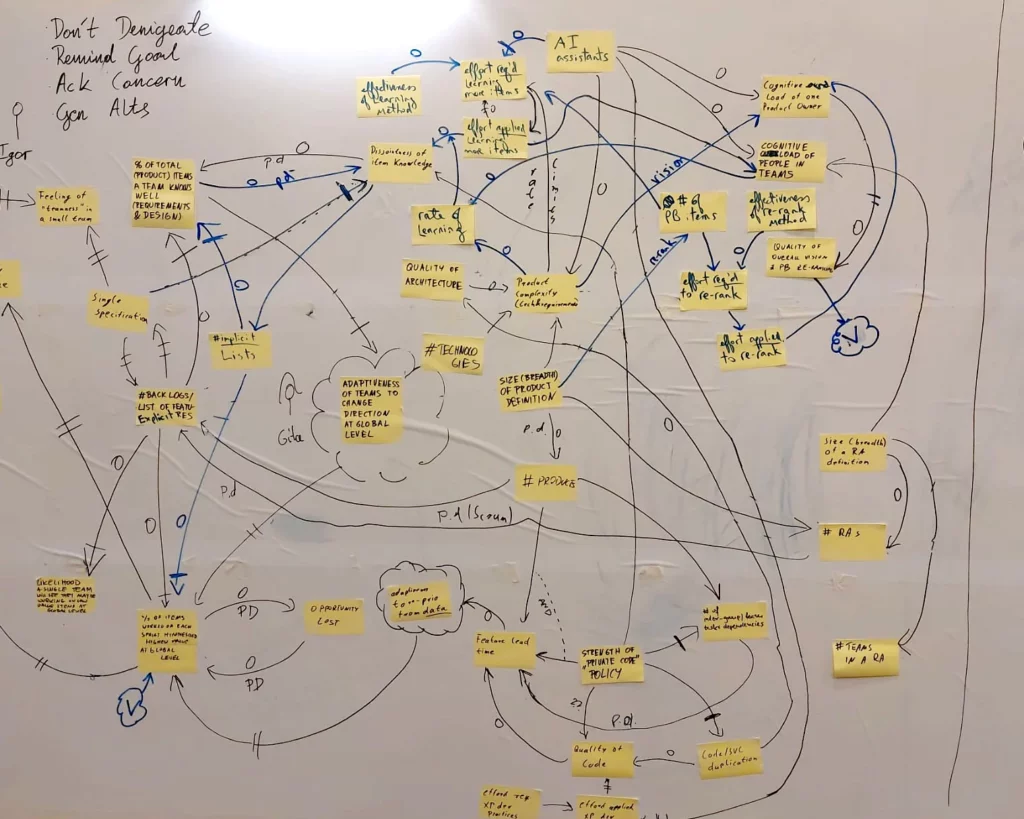 Don't Denigrate
Remind Goal
Ack Concern
Gen Alts
Igor
AI
assistants
effectiveness
of Learning
Method
effort req'd
Learning
more items
effort applied
Learning
more items
Cognitive
Load of one
Product Owner
COGNITIVE
LOAD OF
PEOPLE IN
TEAMS
% OF TOTAL
(PRODUCT) ITEMS
A TEAM KNOWS
WELL
REQUIREMENTS
& DESIGN)
p.d
O pd
Dissimilarness of
item Knowledge
Feeling of
"teamness" in
a small team
rate of
Learning
Limits
Vision
# of
PB items
effectiveness
of re-rank
Method
QUALITY OF
OVERALL VISION
& PB RE-RANKING
QUALITY OF
ARCHITECTURE
Product
Complexity
rerank
effort req'd
to re-rank
effort applied
to re-rank
V
Single
Specification
#implicit
Lists
#TECHNOLO
GIES
ADAPTIVENESS
OF TEAMS TO
CHANGE
DIRECTION
AT GLOBAL
LEVEL
SIZE (BREADTH)
OF PRODUCT
DEFINITION
#BACKLOGS/
LIST OF FEATU-
Explicit RES
Gita
p.d.
Size (breadth)
of a RA
definition
# PRODUCT
p.d
p.d (Scrum)
# RAs
LIKELIHOOD
A SINGLE TEAM
% OF ITEMS
WORKED ON EACH
SPRINT
HIGHEST VALUE
AT GLOBAL
LEVEL
O
PD
OPPORTUNITY
COST
O
PD
V
from data
Feature Lead
time
STRENGTH OF
"PRIVATE CODE"
POLICY
# of
dependencies
# TEAMS
IN A RA
p.d.
??
Quality of
Code
Code/SVC
duplication
effort req
XP dev
practices
effort applied
XP dev